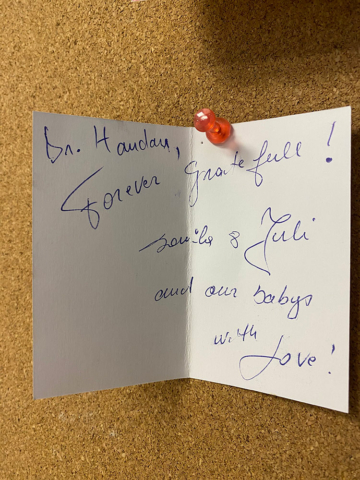 Dr. Handan,
Forever gratefull!
& Juli
and our babys
with
Love!